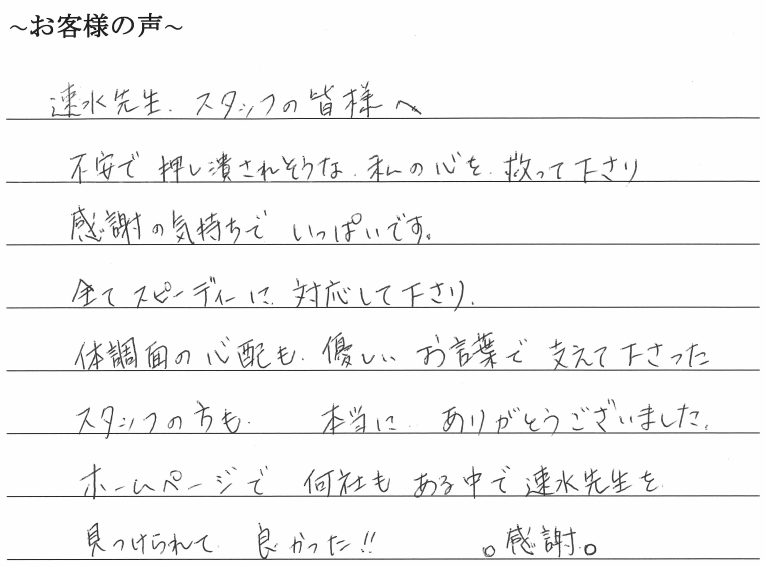 ~お客様の声~
速水先生、スタッフの皆様へ
不安で 押し潰されそうな、私の心を、救って下さり
感謝の気持ちで いっぱいです。
全て スピーディーに、対応して下さり、
体調面の心配も、優しい お言葉で 支えて下さった
スタッフの方も、 本当に ありがとうございました。
ホームページで 何社も ある中で 速水先生を
見つけられて 良かった!! 。感謝。